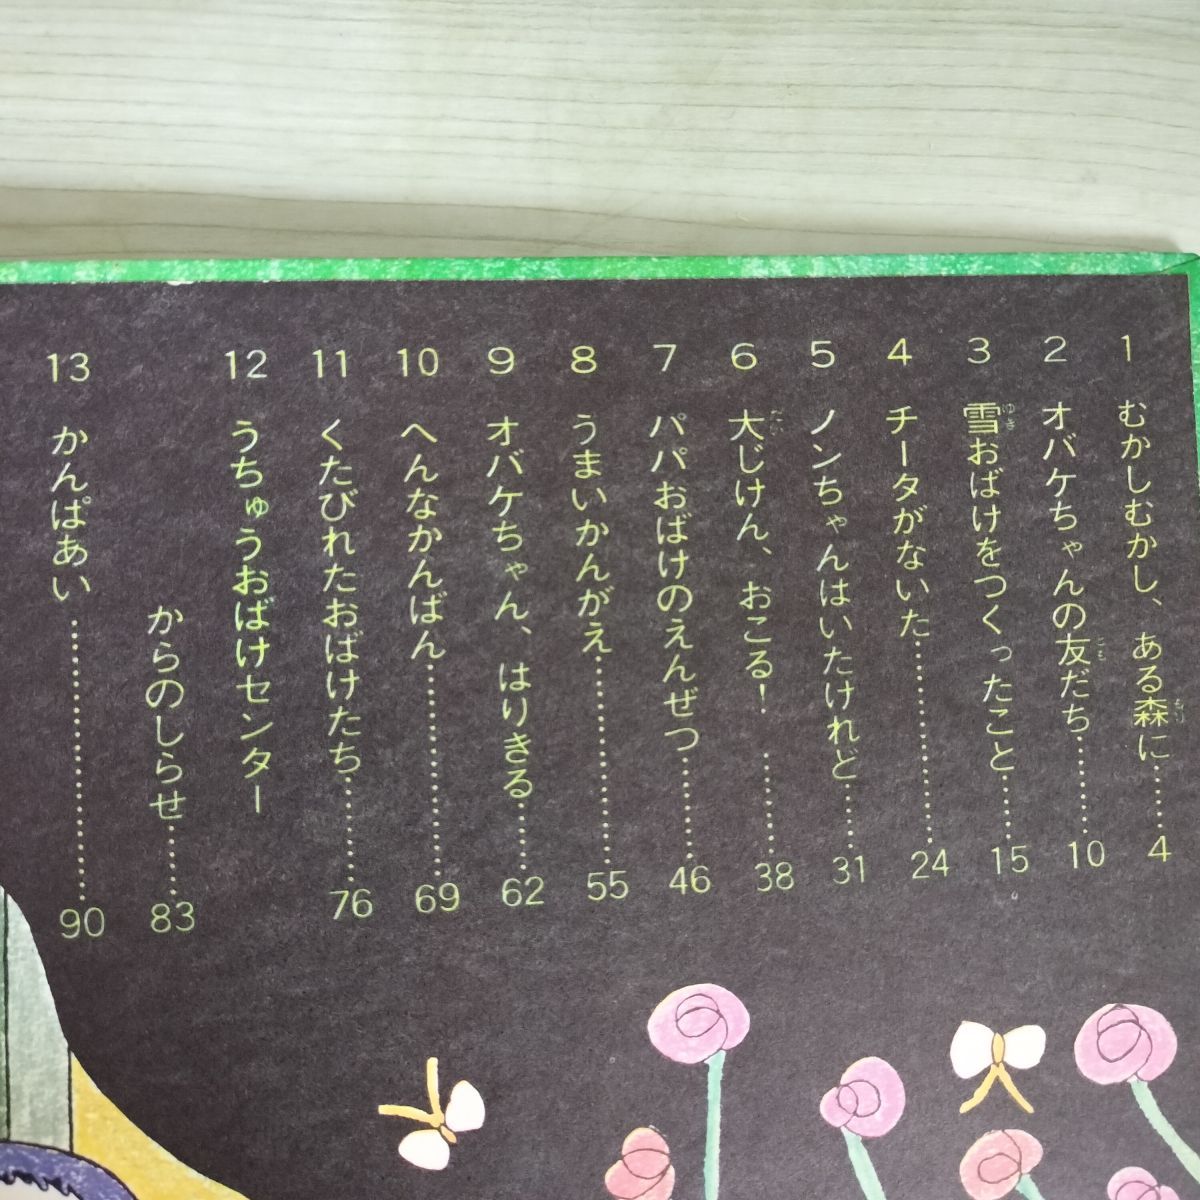 1 むかしむかし、ある森に……4
2 オバケちゃんの友だち……10
3 雪おばけをつくったこと……15
4 チータがないた……24
5 ノンちゃんはいたけれど……31
6 大じけん、おこる！……38
7 パパおばけのえんぜつ……46
8 うまいかんがえ……55
9 オバケちゃん、はりきる……62
10 へんなかんばん……69
11 くたびれたおばけたち……76
12 うちゅうおばけセンター
からのしらせ……83
13 かんぱあい……90